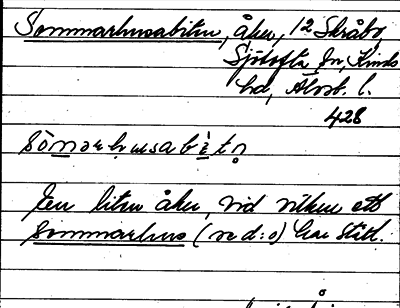 Sommarhusabiten, åker, 12 Skråbo,
Sjötofta sn, Kinds
hd, Älvsb. l.
428
En liten åker, vid vilken ett
sommarhus (se d:o) har stått.